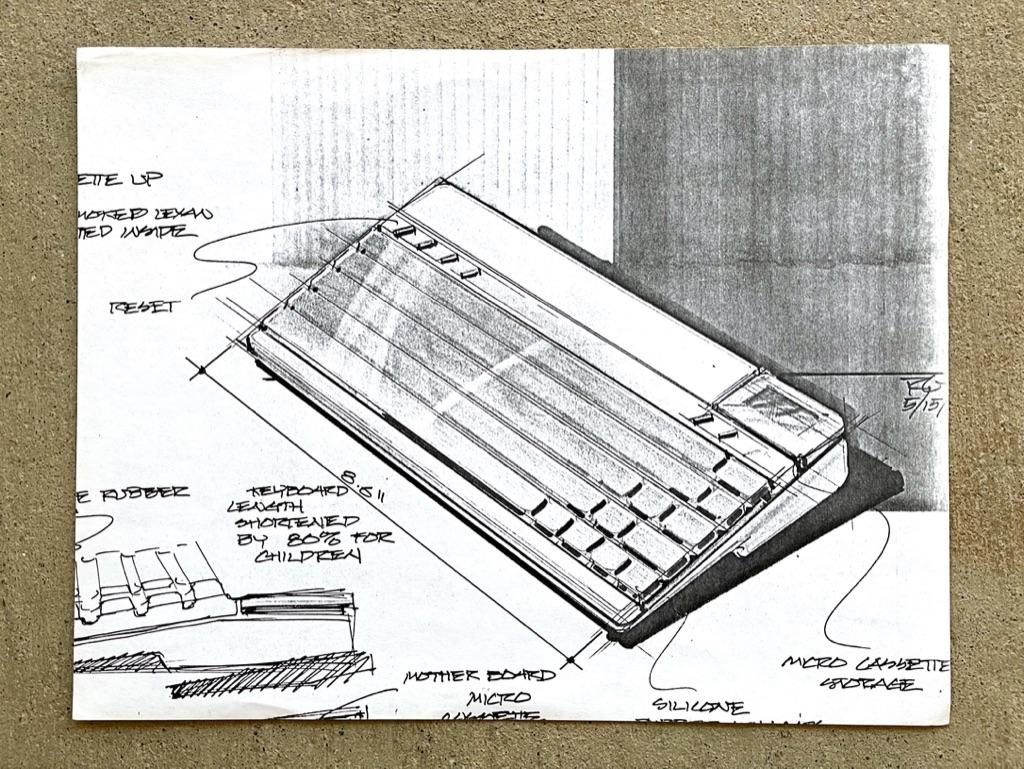 ETTE UP
MOKED LEXAN
TED INSIDE
RESET
5/15/
E RUBBER
KEYBOARD
LENGTH
SHORTENED
BY 80% FOR
CHILDREN
8.5"
MOTHER BOARD
MICRO
CASSETTE
SILICONE
RUBBER
MICRO CASSETTE
STORAGE